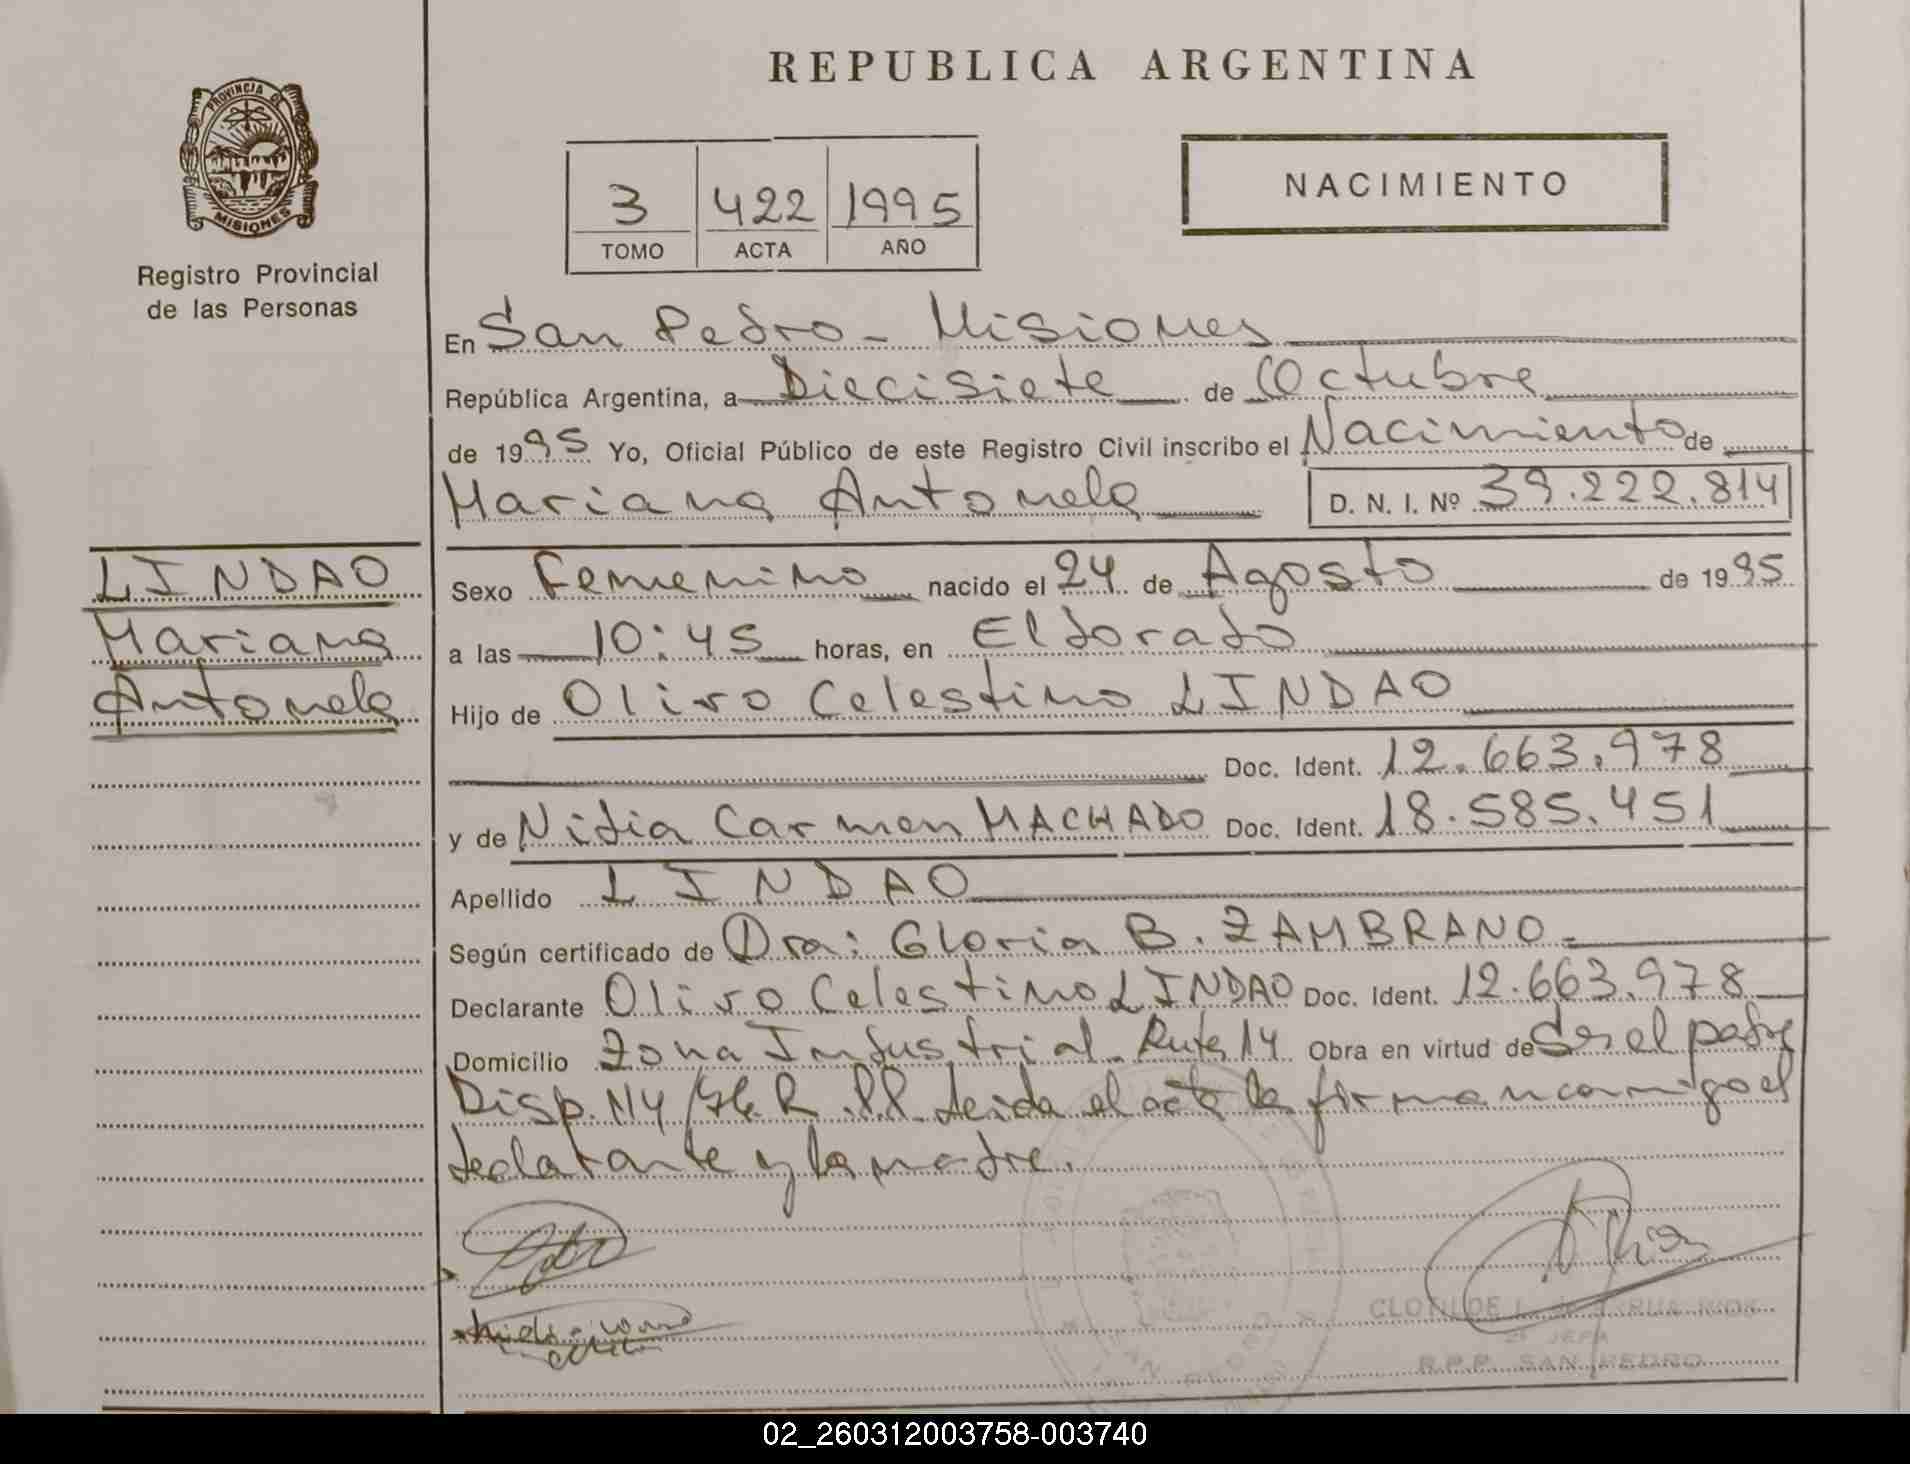 REPUBLICA ARGENTINA
PROVINCIA DE
MISIONES
Registro Provincial
de las Personas
3 422 1995
TOMO ACTA AÑO
NACIMIENTO
En San Pedro - Misiones
República Argentina, a Diecisiete de Octubre
de 1995 Yo, Oficial Público de este Registro Civil inscribo el Nacimiento de
Mariana Antonela D. N. I. Nº 39.222.814
LINDAO
Mariana
Antonela
Sexo Femenino nacido el 24 de Agosto de 1995
a las 10:45 horas, en Eldorado
Hijo de Olivo Celestino LINDAO
Doc. Ident. 12.663.978
y de Nidia Carmen MACHADO Doc. Ident. 18.585.451
Apellido LINDAO
Según certificado de Dra: Gloria B. ZAMBRANO
Declarante Olivo Celestino LINDAO Doc. Ident. 12.663.978
Domicilio Zona Industrial Ruta 14 Obra en virtud de Ser el padre
Disp. leida el acta la firman conmigo el
declarante y la madre.
CLOTILDE RIOS
JEFA
R.P.P. SAN PEDRO
02_260312003758-003740